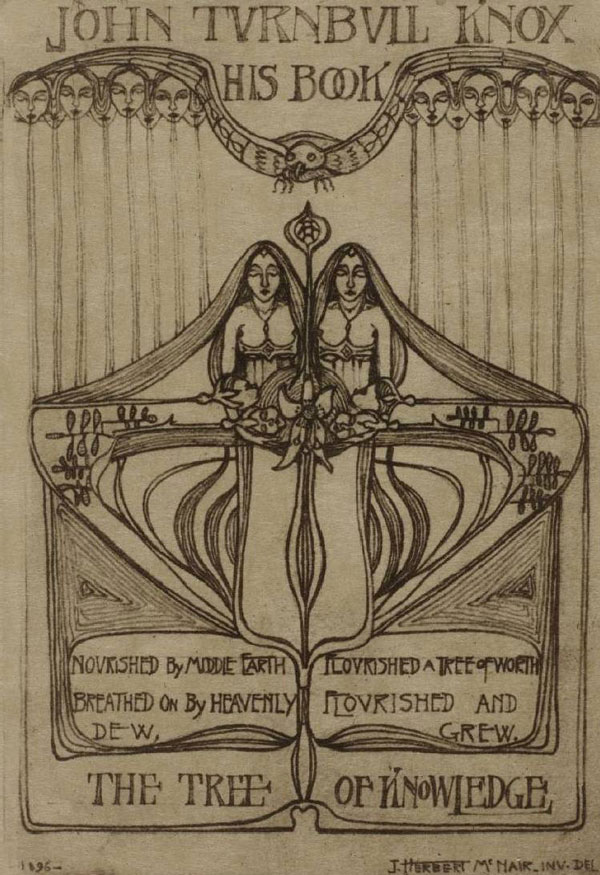 JOHN TVRNBVLL KNOX
HIS BOOK
NOVRISHED By MIDDLE EARTH
BREATHED ON By HEAVENLY
DEW,
FLOVRISHED A TREE OF WORTH
FLOVRISHED AND
GREW.
THE TREE OF KNOWLEDGE
1896-
J. HERBERT McNAIR. INV. DEL